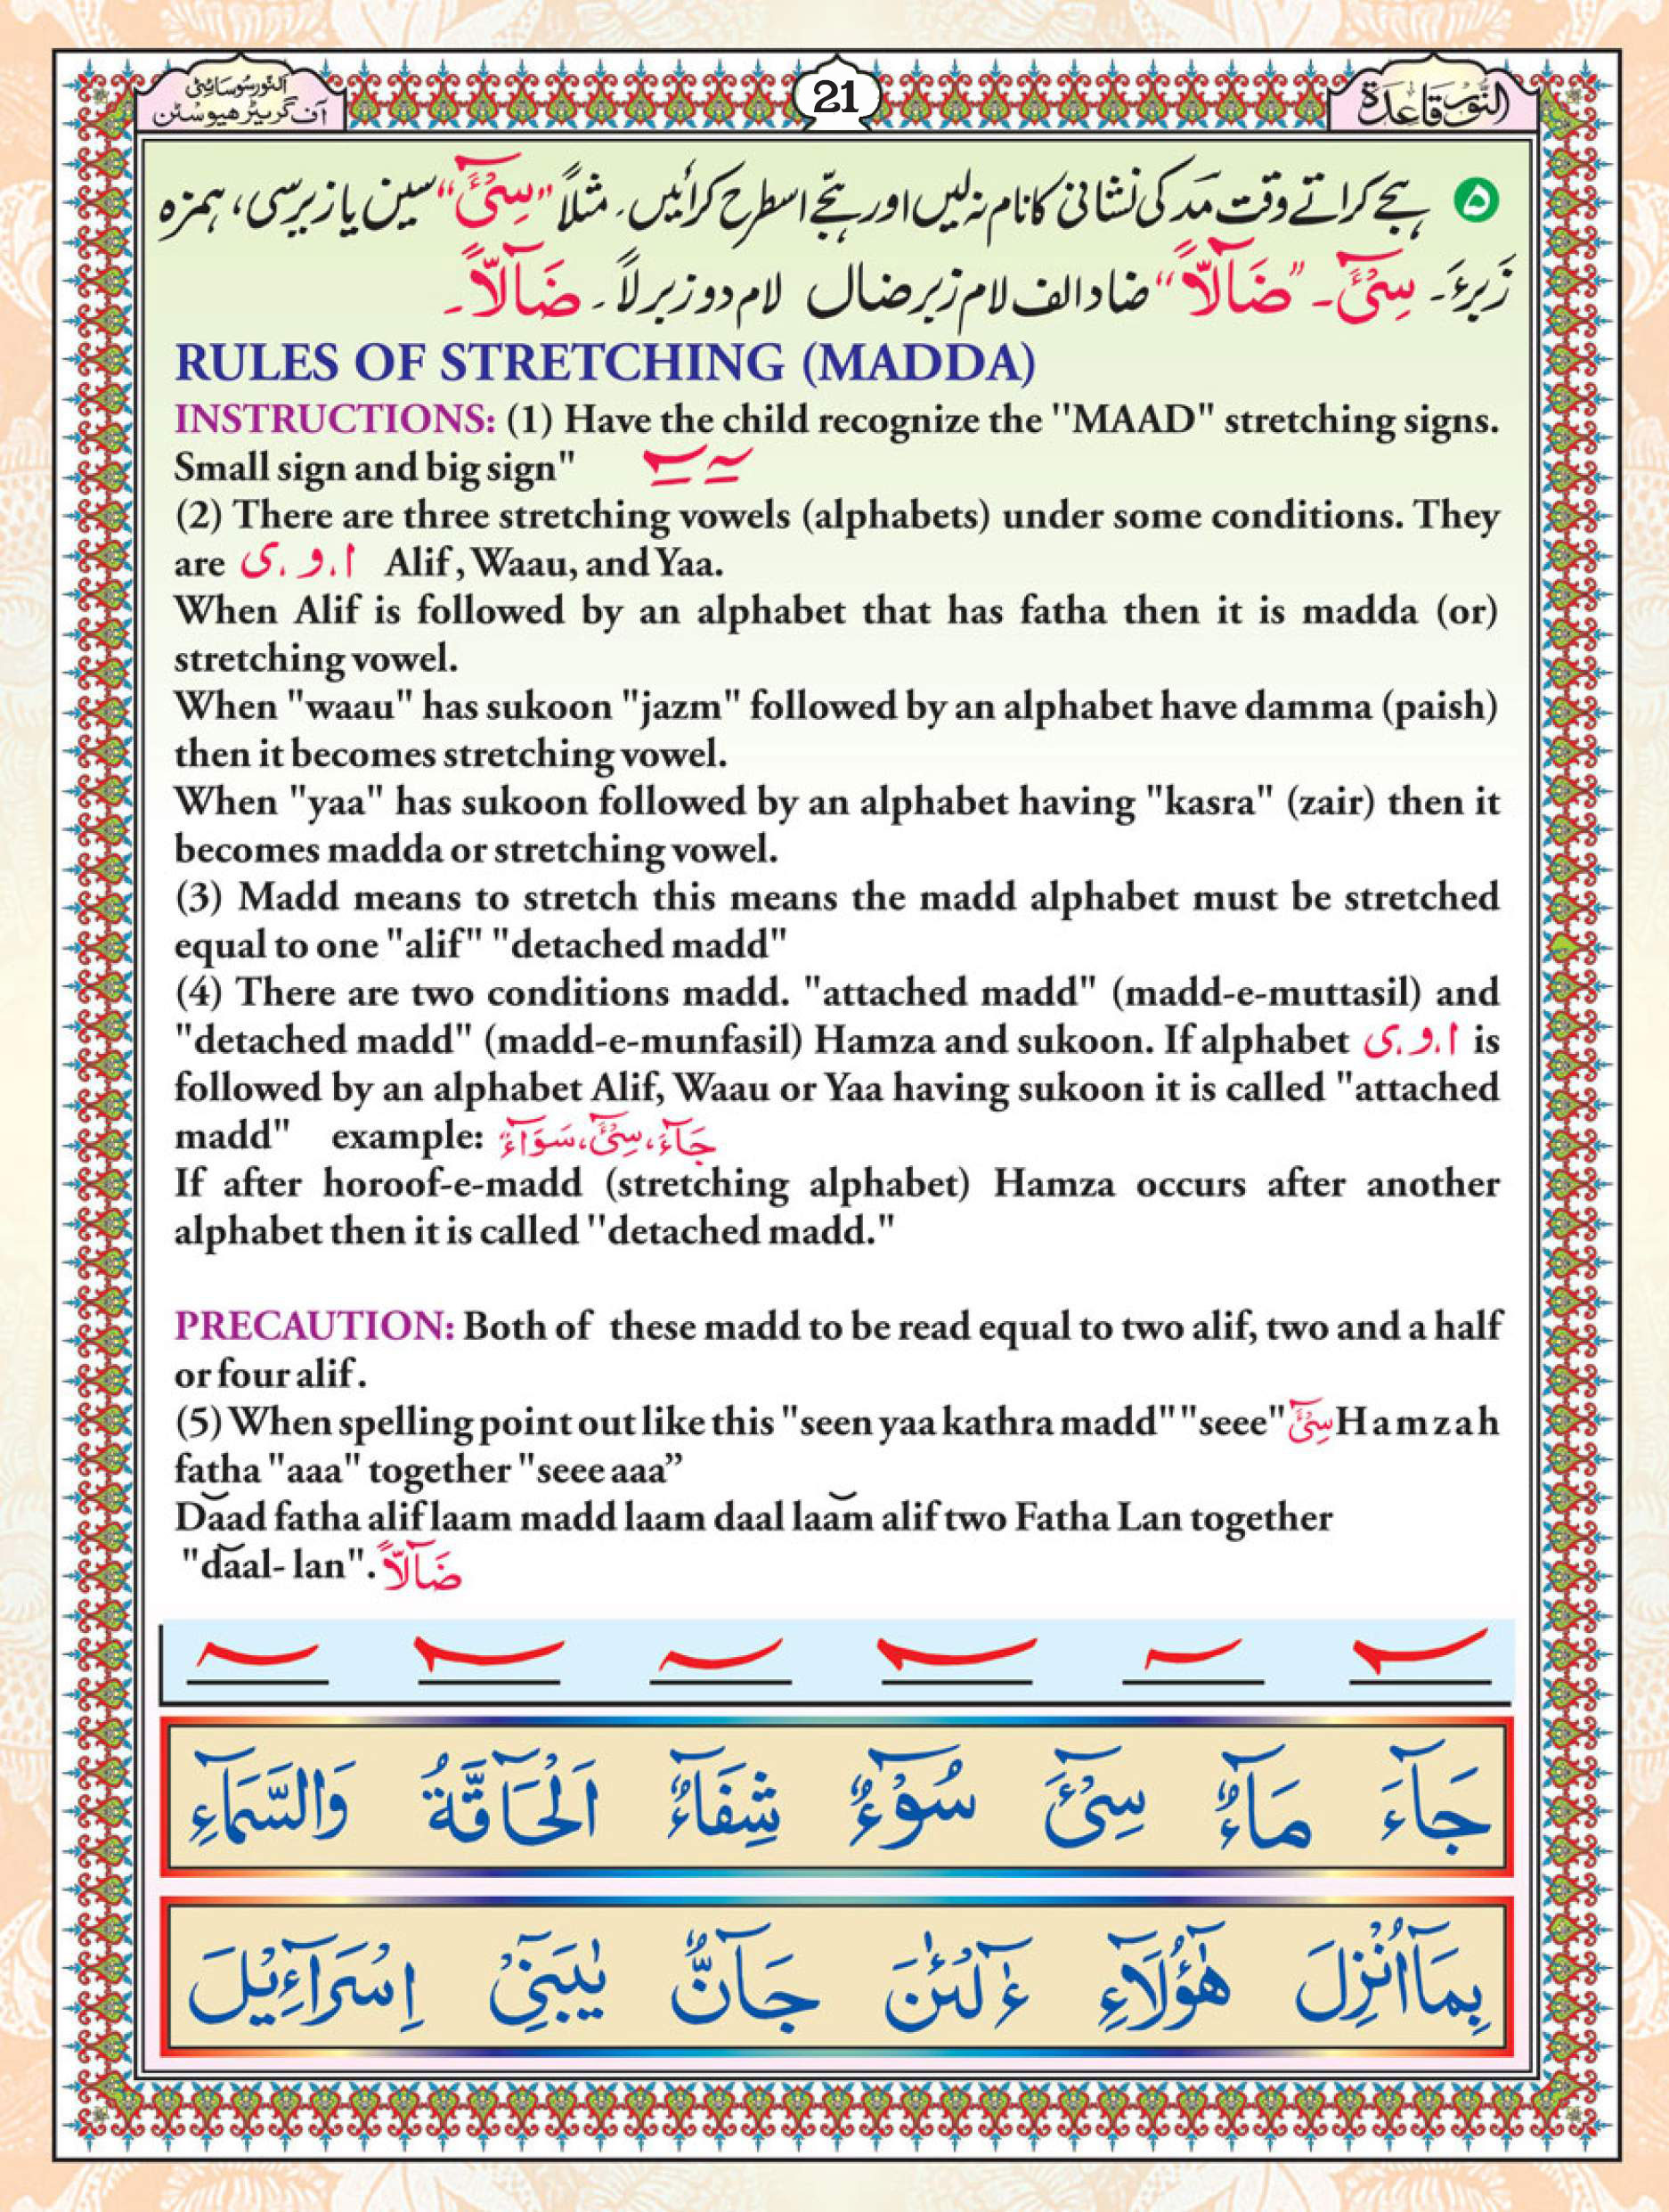 النور قاعدة
21
النور سوسائیٹی
آف گریٹر ھیوسٹن
۵ ہجے کراتے وقت مَد کی نشانی کا نام نہ لیں اور ہجّے اسطرح کرائیں۔ مثلاً "سِیْٓئَ" سین یا زیر سی، ہمزہ
زَبر ءَ۔ سِیْٓئَ۔ "ضَآلًّا" ضاد الف لام زبر ضال لام دو زبر لاً۔ ضَآلًّا۔
RULES OF STRETCHING (MADDA)
INSTRUCTIONS: (1) Have the child recognize the ''MAAD" stretching signs.
Small sign and big sign"
(2) There are three stretching vowels (alphabets) under some conditions. They
are ا، و، ی Alif, Waau, and Yaa.
When Alif is followed by an alphabet that has fatha then it is madda (or)
stretching vowel.
When "waau" has sukoon "jazm" followed by an alphabet have damma (paish)
then it becomes stretching vowel.
When "yaa" has sukoon followed by an alphabet having "kasra" (zair) then it
becomes madda or stretching vowel.
(3) Madd means to stretch this means the madd alphabet must be stretched
equal to one "alif" "detached madd"
(4) There are two conditions madd. "attached madd" (madd-e-muttasil) and
"detached madd" (madd-e-munfasil) Hamza and sukoon. If alphabet ا، و، ی is
followed by an alphabet Alif, Waau or Yaa having sukoon it is called "attached
madd" example: جَآءَ، سِیْٓئَ، سَوَآءٌ
If after horoof-e-madd (stretching alphabet) Hamza occurs after another
alphabet then it is called ''detached madd."
PRECAUTION: Both of these madd to be read equal to two alif, two and a half
or four alif.
(5) When spelling point out like this "seen yaa kathra madd" "seee" سِیْٓئَ Hamzah
fatha "aaa" together "seee aaa”
Daad fatha alif laam madd laam daal laam alif two Fatha Lan together
"daal- lan". ضَآلًّا
جَآءَ مَآءٌ سِیْٓئَ سُوْٓءٌ شِفَآءٌ اَلْحَآقَّةُ وَالسَّمَآءِ
بِمَآ اُنْزِلَ هٰٓؤُلَآءِ ءٰٓالْـٰٔنَ جَآنٌّ يٰبَنِيْٓ اِسْرَآءِيْلَ